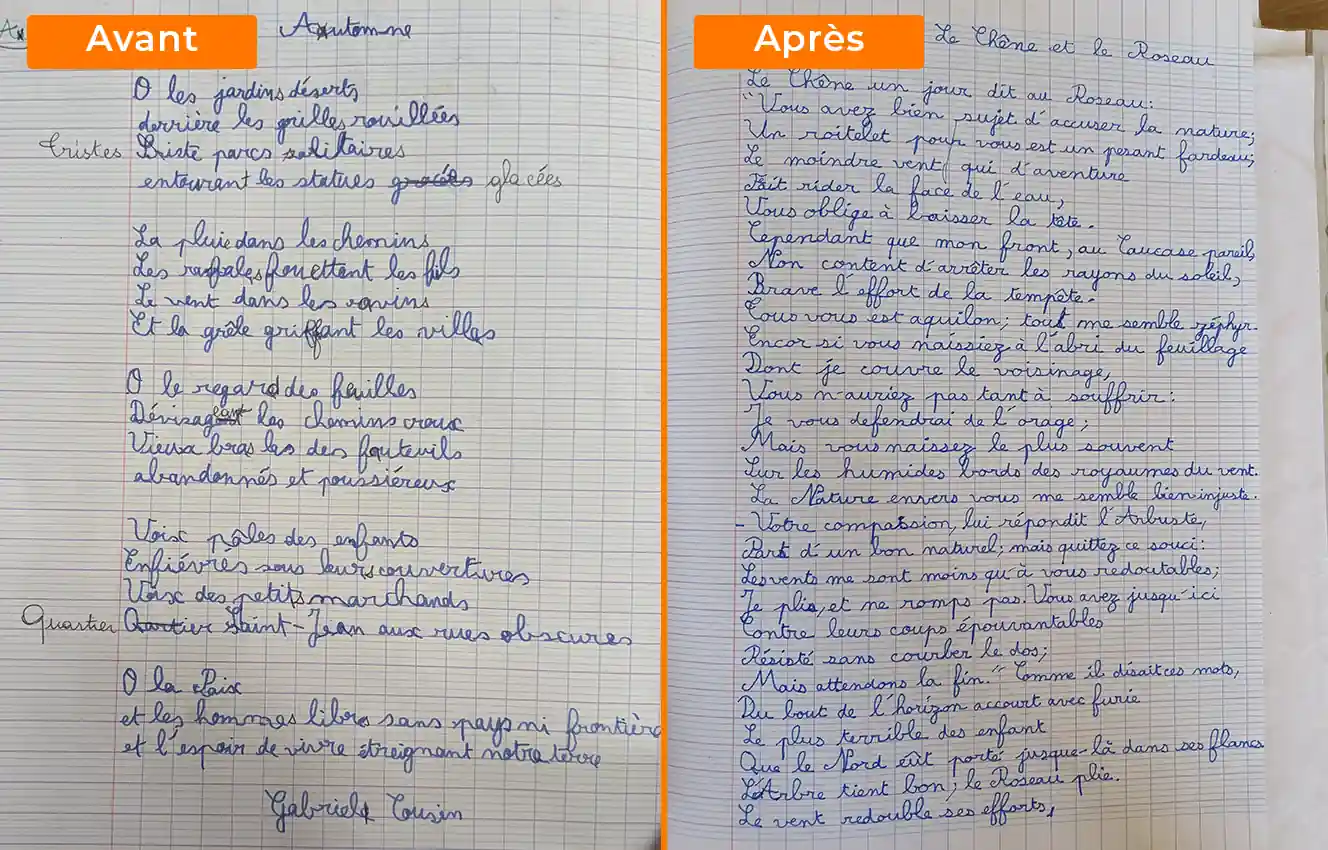 Avant
Automne
O les jardins déserts
derrière les grilles rouillées
Tristes Triste parcs solitaires
entourant les statues glacées
La pluie dans les chemins
Les raffales fouettant les fils
Le vent dans les ravins
Et la grêle griffant les villes
O le regard des feuilles
Dévisageant les chemins creux
Vieux bras las des fauteuils
abandonnés et poussiéreux
Voix pâles des enfants
Enfiévrés sous leurs couvertures
Voix des petits marchands
Quartier Saint-Jean aux rues obscures
O la Paix
et les hommes libres sans pays ni frontière
et l'espoir de vivre étreignant notre terre
Gabriel Cousin
Après
Le Chêne et le Roseau
Le Chêne un jour dit au Roseau:
"Vous avez bien sujet d'accuser la nature;
Un roitelet pour vous est un pesant fardeau;
Le moindre vent qui d'aventure
Fait rider la face de l'eau,
Vous oblige à baisser la tête.
Cependant que mon front, au Caucase pareil,
Non content d'arrêter les rayons du soleil,
Brave l'effort de la tempête.
Tous vous est aquilon; tout me semble zéphyr.
Encor si vous naissiez à l'abri du feuillage
Dont je couvre le voisinage,
Vous n'auriez pas tant à souffrir:
Je vous defendrai de l'orage;
Mais vous naissez le plus souvent
Sur les humides bords des royaumes du vent.
La Nature envers vous me semble bien injuste.
- Votre compassion, lui répondit l'Arbuste,
Part d'un bon naturel; mais quittez ce souci:
Les vents me sont moins qu'à vous redoutables;
Je plie, et ne romps pas. Vous avez jusqu'ici
Contre leurs coups épouvantables
Résisté sans courber le dos;
Mais attendons la fin." Comme il disait ces mots,
Du bout de l'horizon accourt avec furie
Le plus terrible des enfant
Que le Nord eût porté jusque-là dans ses flancs
L'Arbre tient bon; le Roseau plie.
Le vent redouble ses efforts,